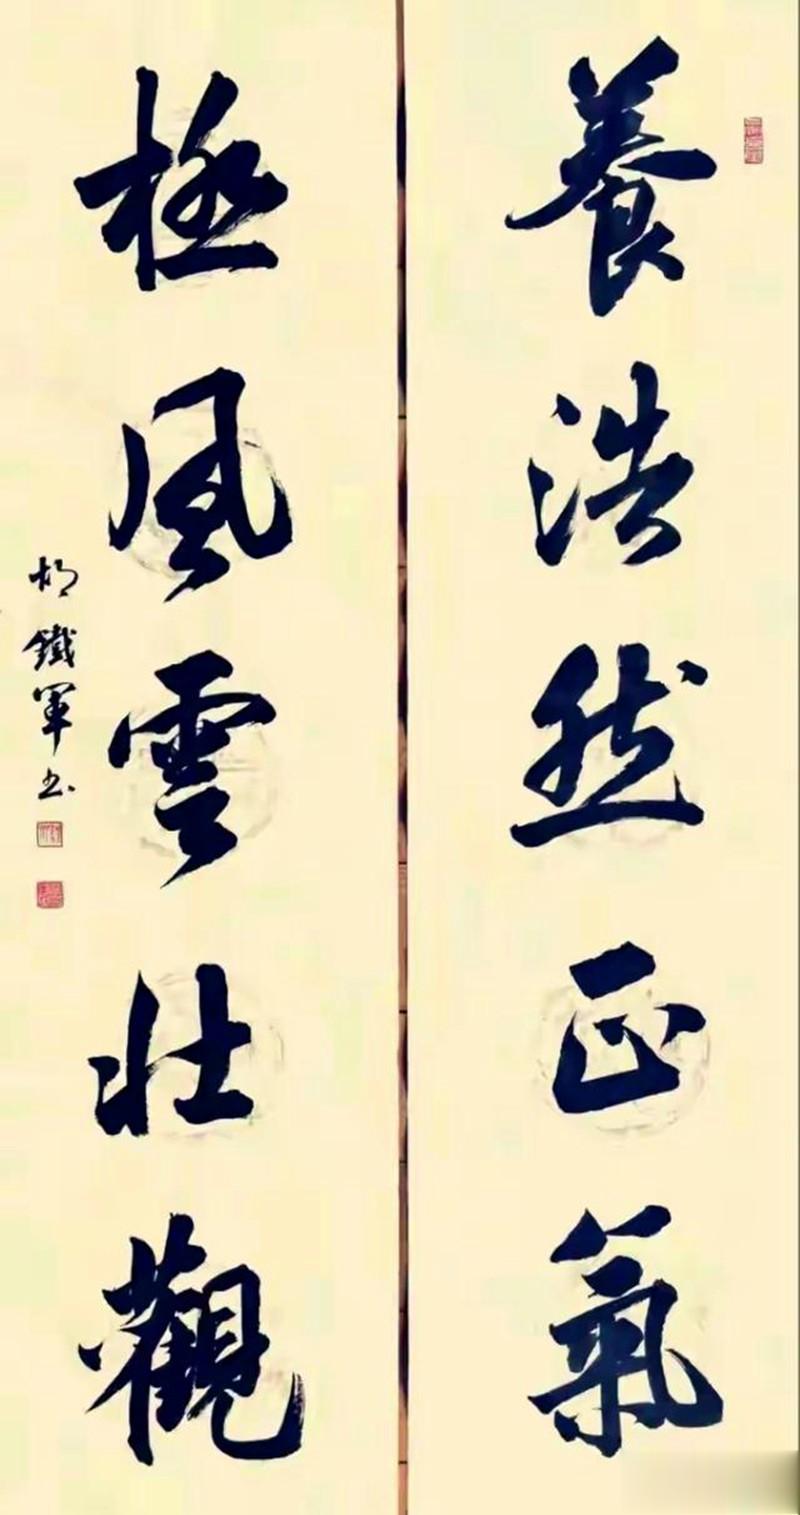 養浩然正氣
極風雲壯觀
胡鐵軍书